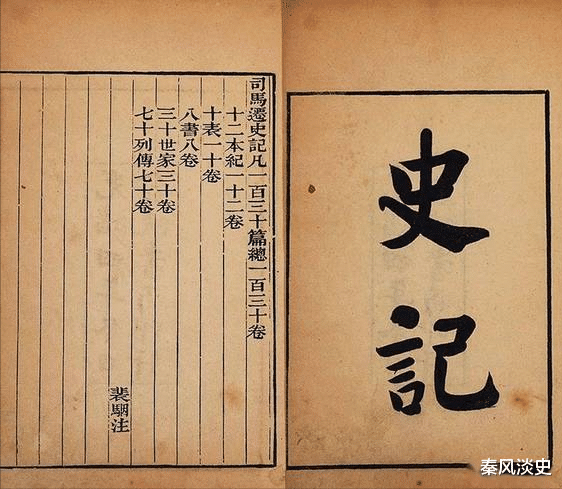 史記
司馬遷史記凡一百三十篇總一百三十卷
十二本紀一十二卷
十表一十卷
八書八卷
三十世家三十卷
七十列傳七十卷
裴駰注
秦风淡史